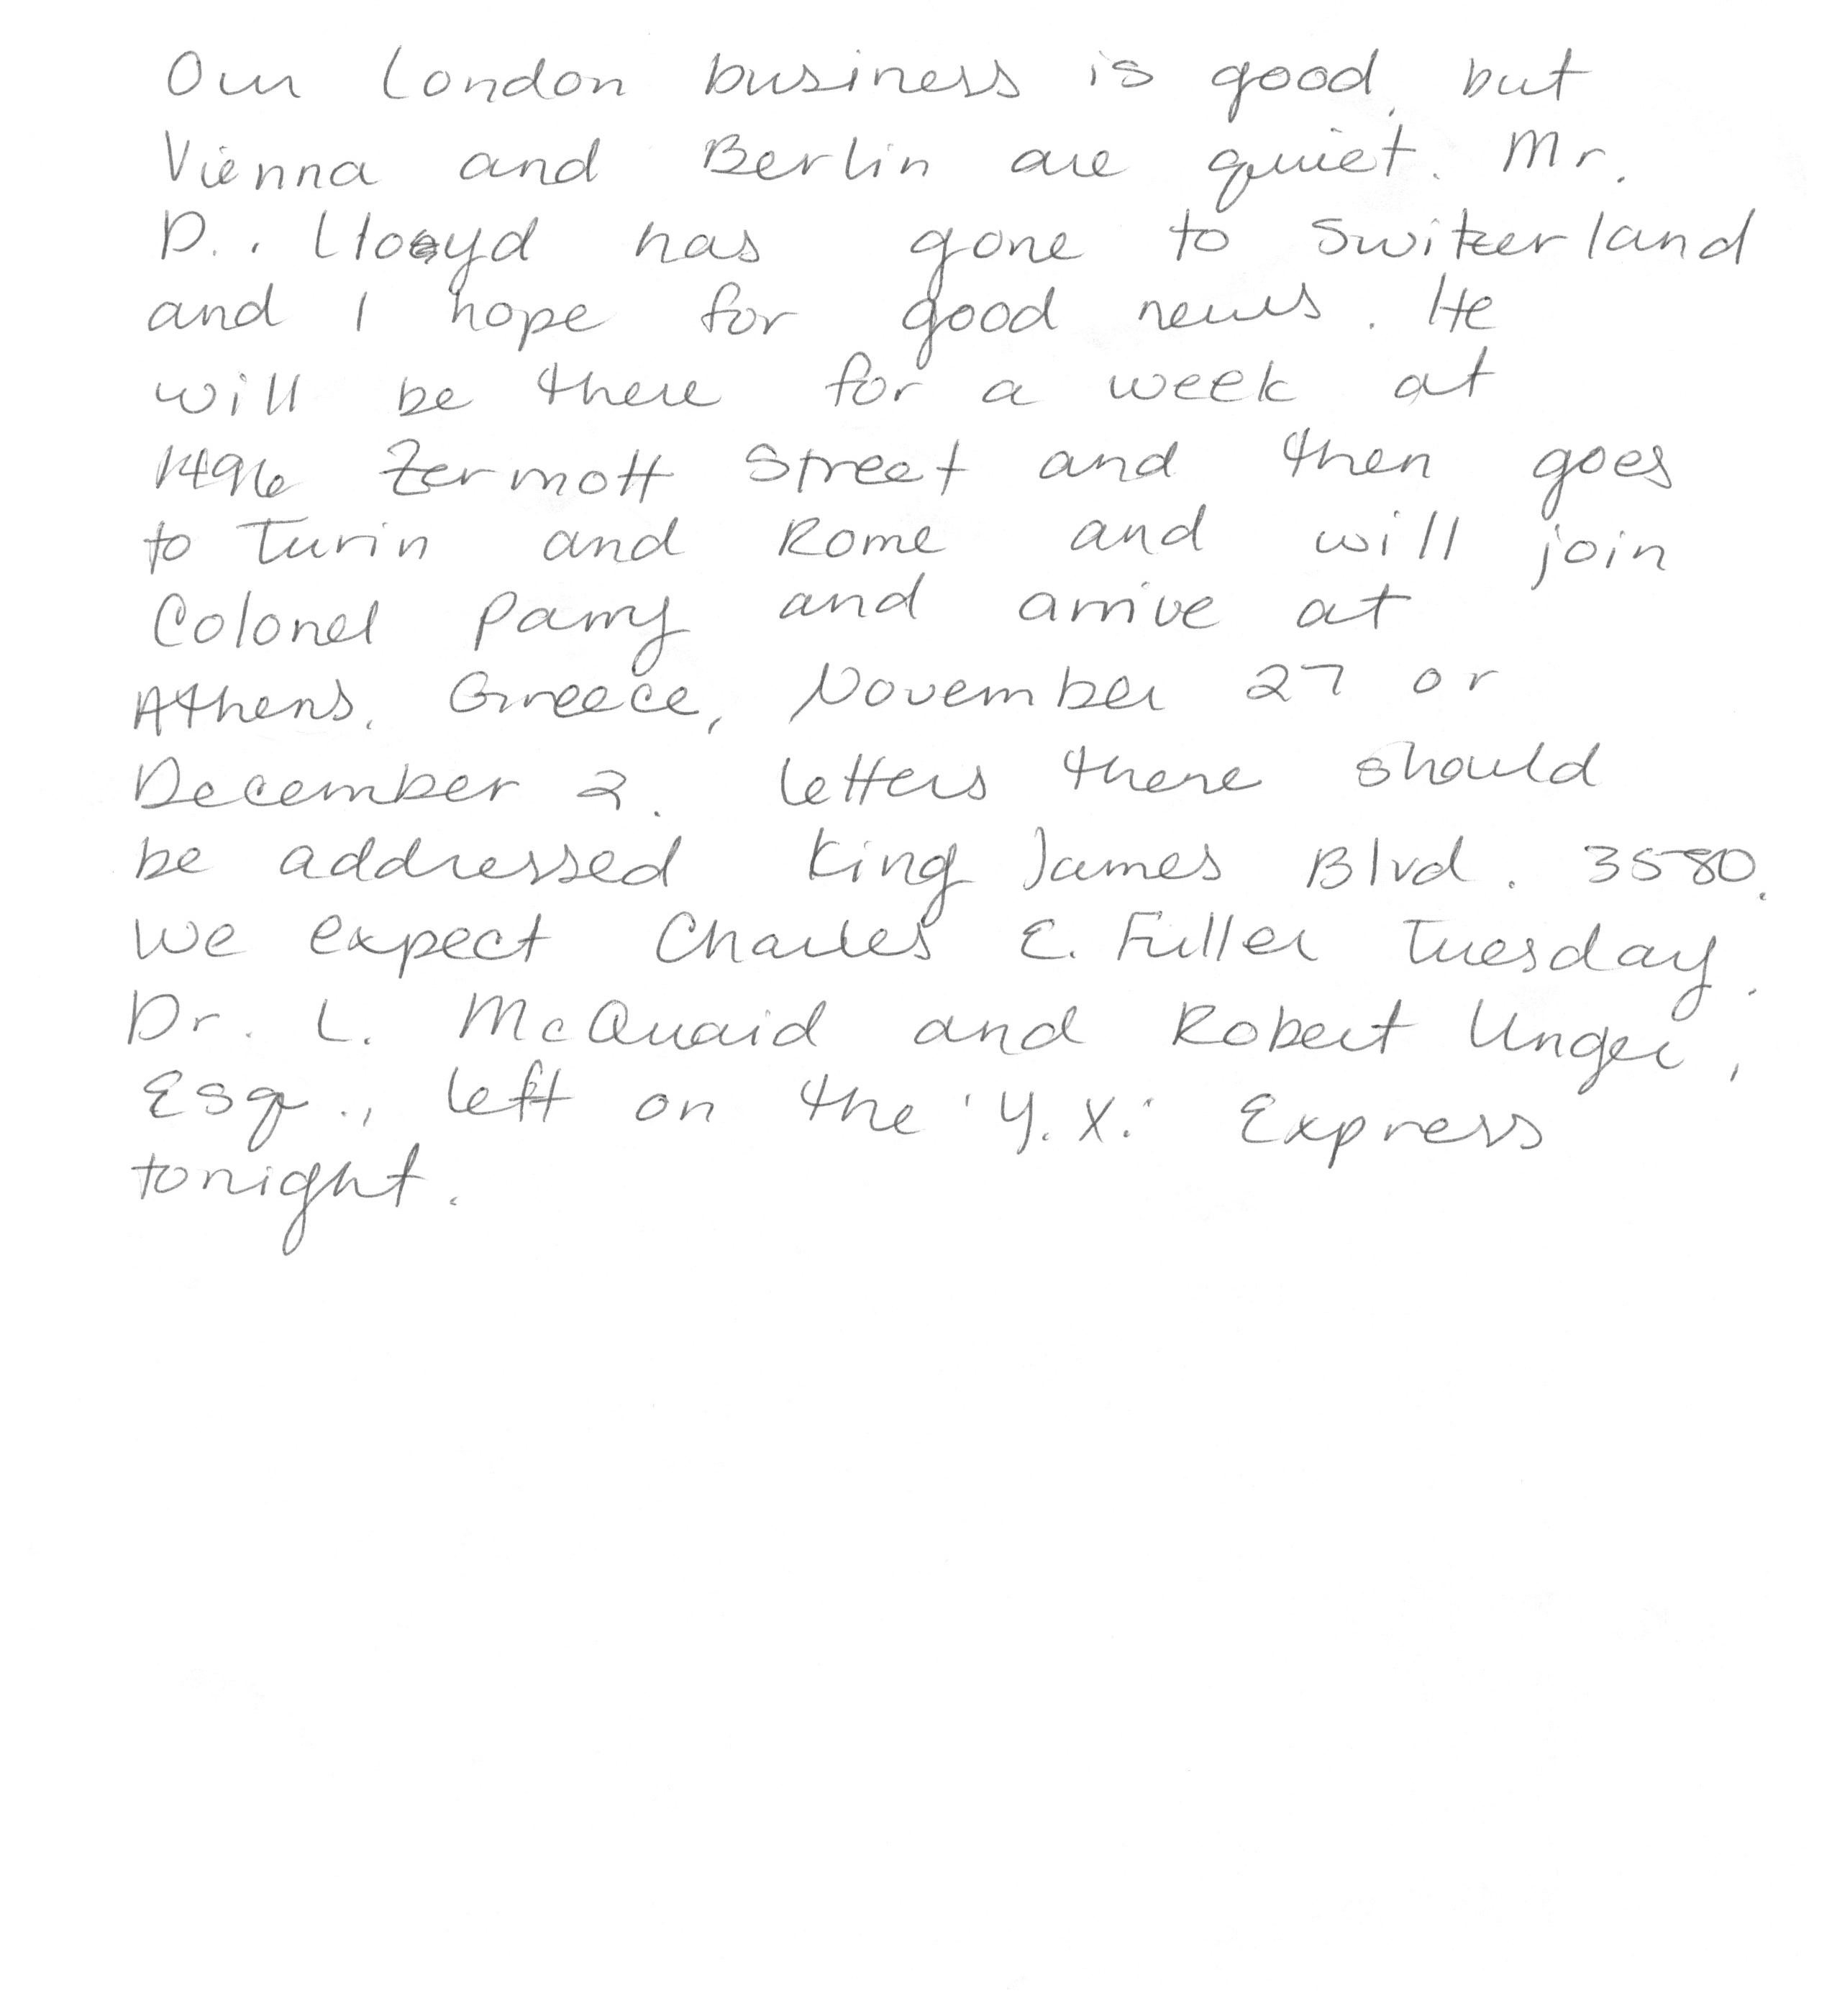 Our London business is good, but
Vienna and Berlin are quiet. Mr.
D.. Lloyd has gone to Switzerland
and I hope for good news. He
will be there for a week at
1496 Zermott Street and then goes
to Turin and Rome and will join
Colonel Parry and arrive at
Athens, Greece, November 27 or
December 2. Letters there should
be addressed King James Blvd. 3580.
We expect Charles E. Fuller Tuesday.
Dr. L. McQuaid and Robert Unger,
Esq., left on the 'Y.X.' Express
tonight.